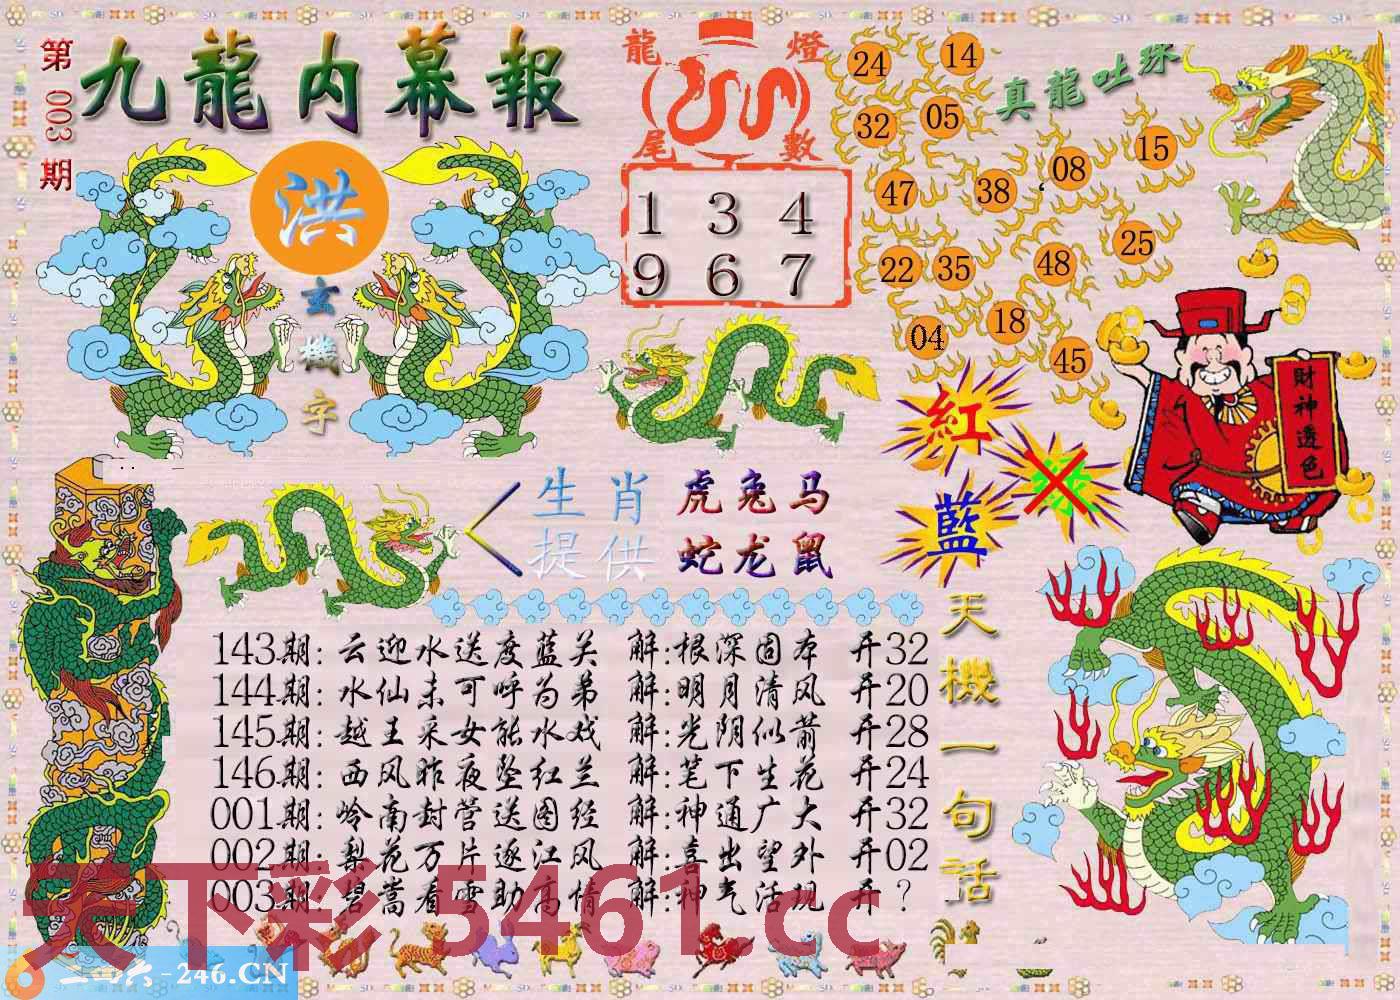 第003期
九龍内幕報
洪
玄機字
龍燈尾數
1 3 4
9 6 7
真龍吐珠
24 14
32 05
47 38 08 15
22 35 48 25
04 18 45
紅
綠
藍
財神透色
生肖提供
虎兔马
蛇龙鼠
天機一句話
143期: 云迎水送度蓝关 解:根深固本 开32
144期: 水仙未可呼为弟 解:明月清风 开20
145期: 越王采女能水戏 解:光阴似箭 开28
146期: 西风昨夜坠红兰 解:笔下生花 开24
001期: 岭南封管送图经 解:神通广大 开32
002期: 梨花万片逐江风 解:喜出望外 开02
003期: 碧嵩看雪助高情 解:神气活现 开?
天下彩 5461.cc
二四六-246.CN